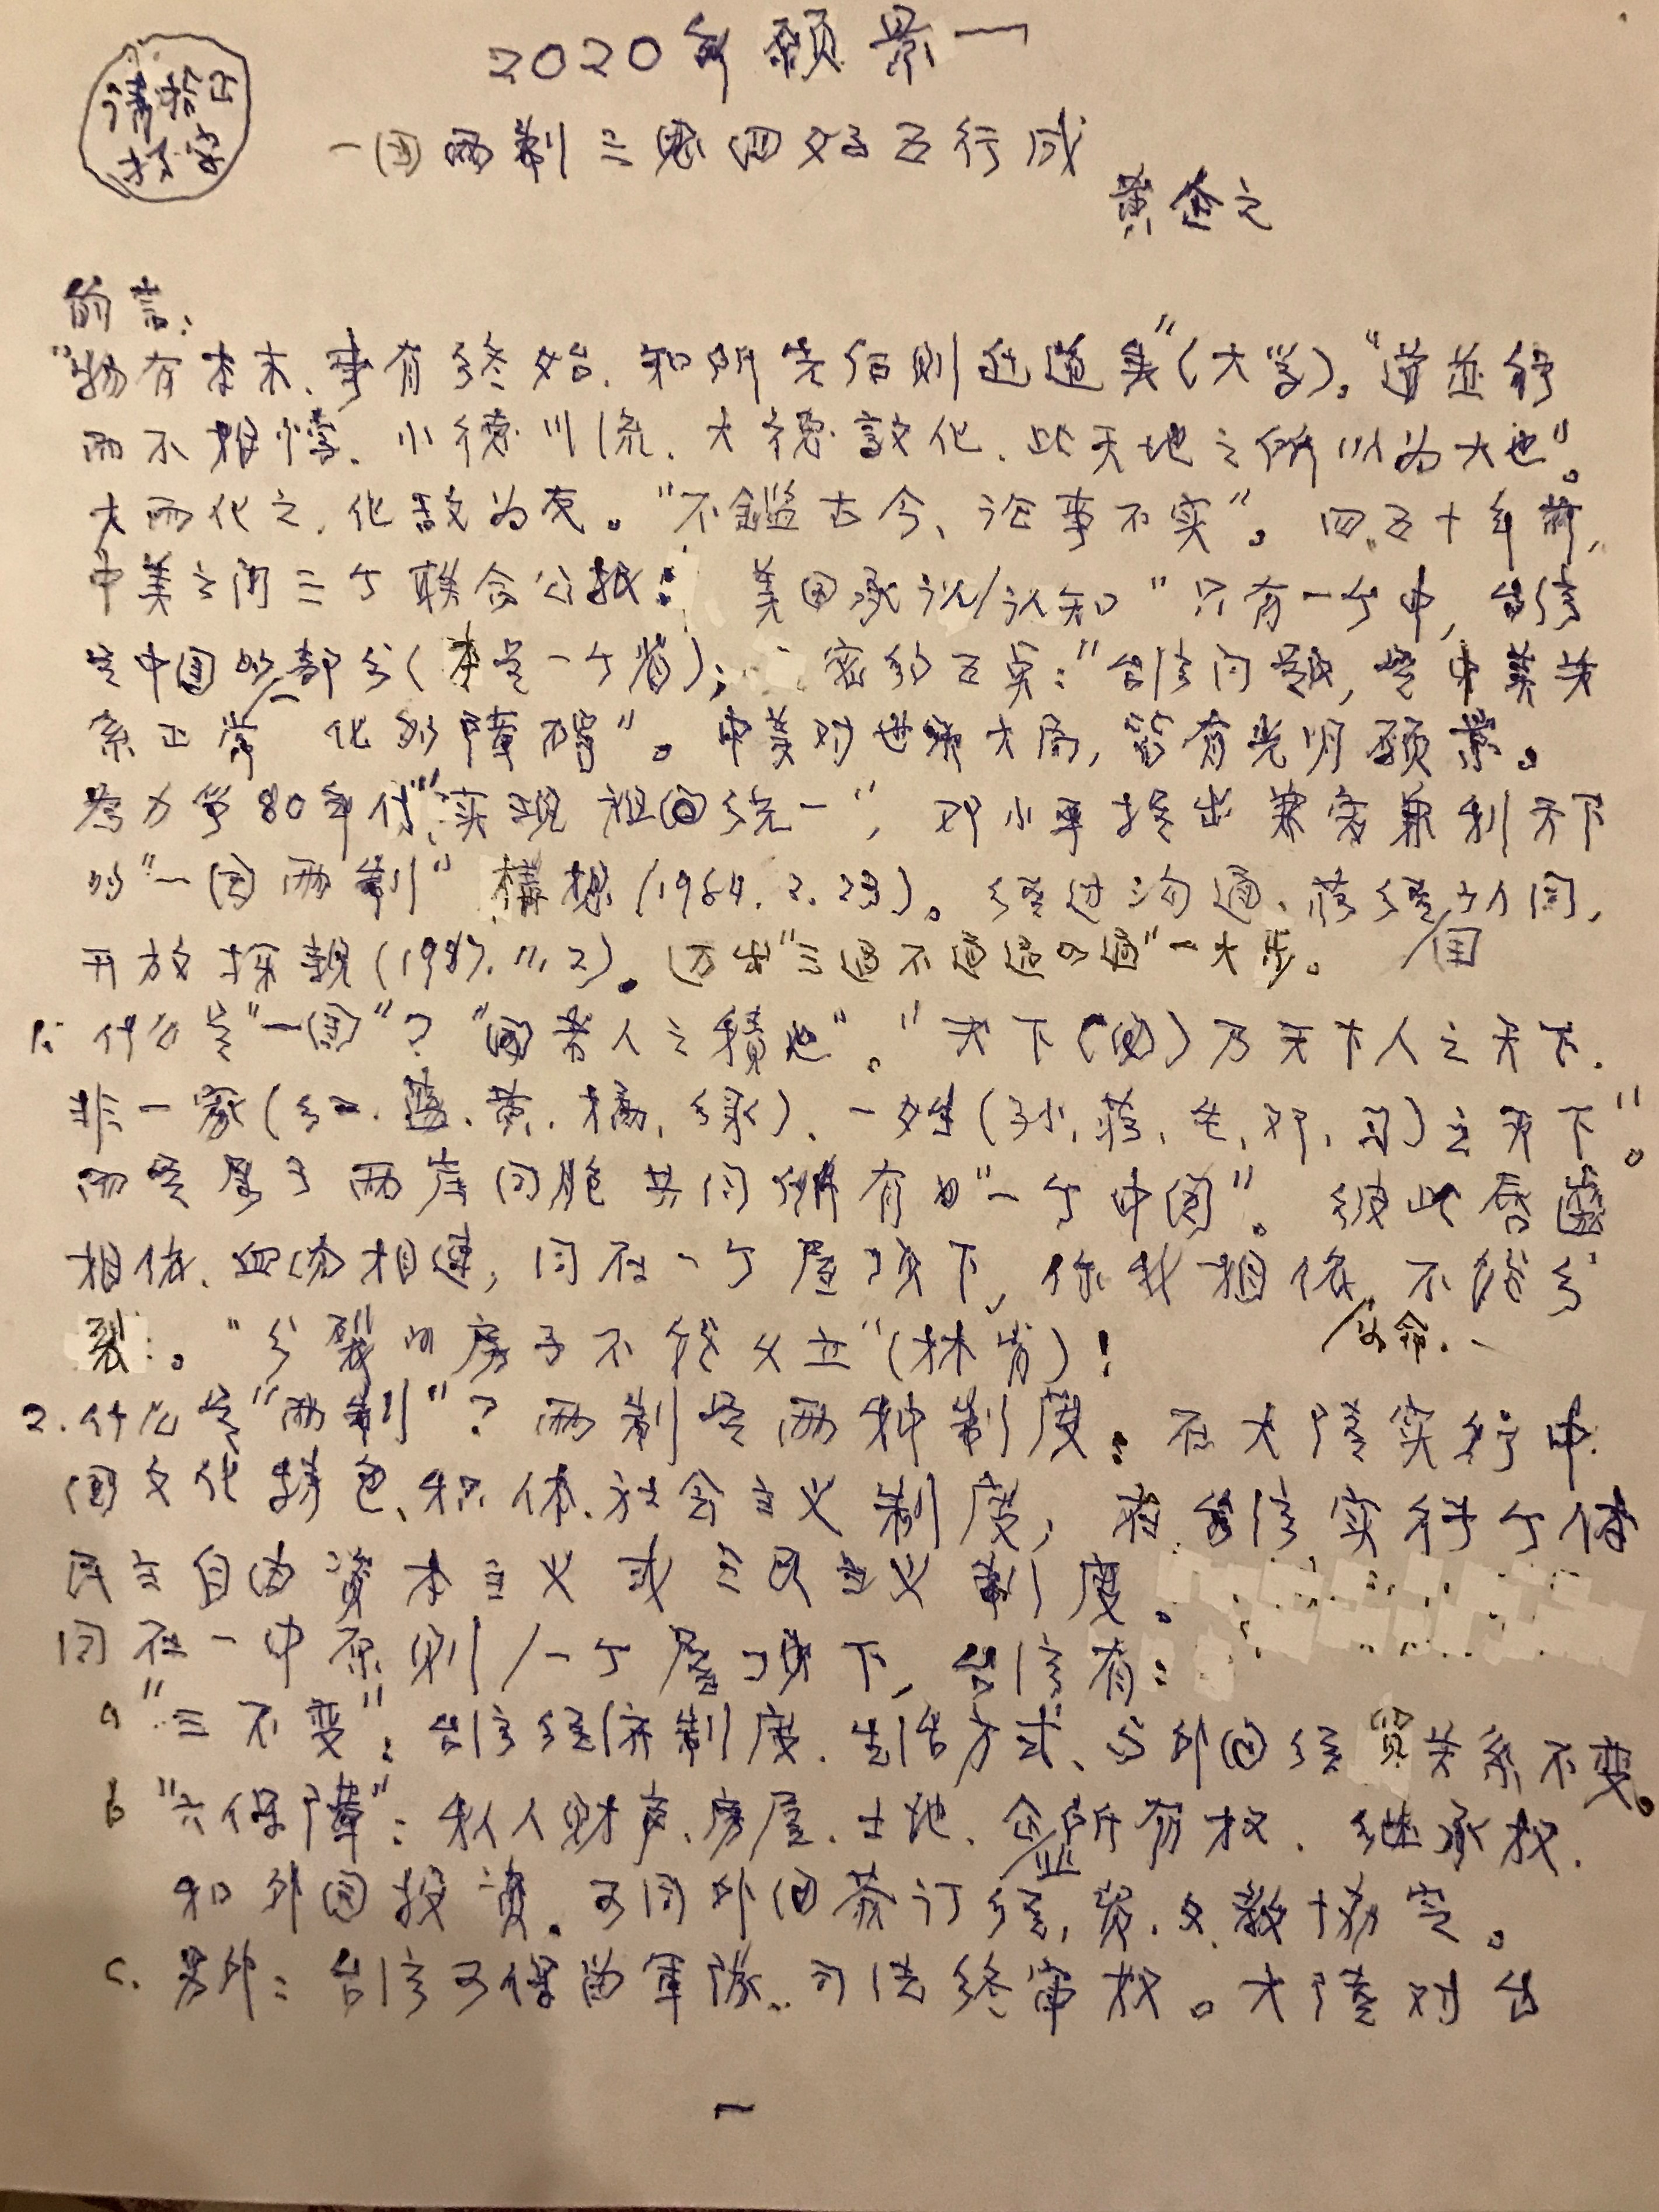 2020年願景一
請指正
抄字
一国兩制三思四好五行成
黄
前言:
"物有本末、事有终始、知所先后則近道矣"(大学)。"道並行
而不相悖、小德川流、大德敦化、此天地之所以为大也"。
大而化之,化敌为友。"不鑑古今、论事不实"。四、五十年前,
中美之间三个联合公报: 美国承认/认知"只有一个中,台湾
是中国的一部分(本是一个省); 密约五点:"台湾问题,是中美关
系正常 化的障碍"。中美对世界大局,皆有光明願景。
为力争80年代"实现祖国统一",邓小平提出兼容兼利天下
的"一国兩制"構想(1984.2.23)。经过沟通、蒋经国同,
开放探親(1987.11.2)。迈出"三通不通通四通"一大步。
1. 什么是"一国"?"国者人之積也"。"天下(国)乃天下人之天下.
非一家(红、蓝、黄、橘、绿)、一姓(孙、蒋、毛、邓、习)之天下"。
而是属于兩岸同胞共同所有的"一个中国"。彼此唇齒
相依、血肉相連,同在一个屋顶下,你我相依为命、不能分
裂。"分裂的房子不能父立"(林肯)!
2. 什么是"兩制"?兩制是兩种制度:在大陸实行中
国文化特色、积体、社会主义制度,在台湾实行个体
民主自由資本主义或三民主义制度。
同在一中原則/一个屋顶下,台湾有:
a "三不变":台湾经济制度、生活方式、与外国经貿关系不变。
b "六保障":私人财产、房屋、土地、企业所有权、继承权.
和外国投資。可同外国签订经,貿.文教协定。
c. 另外:台湾可保留軍隊..司法终審权。大陸对台
一